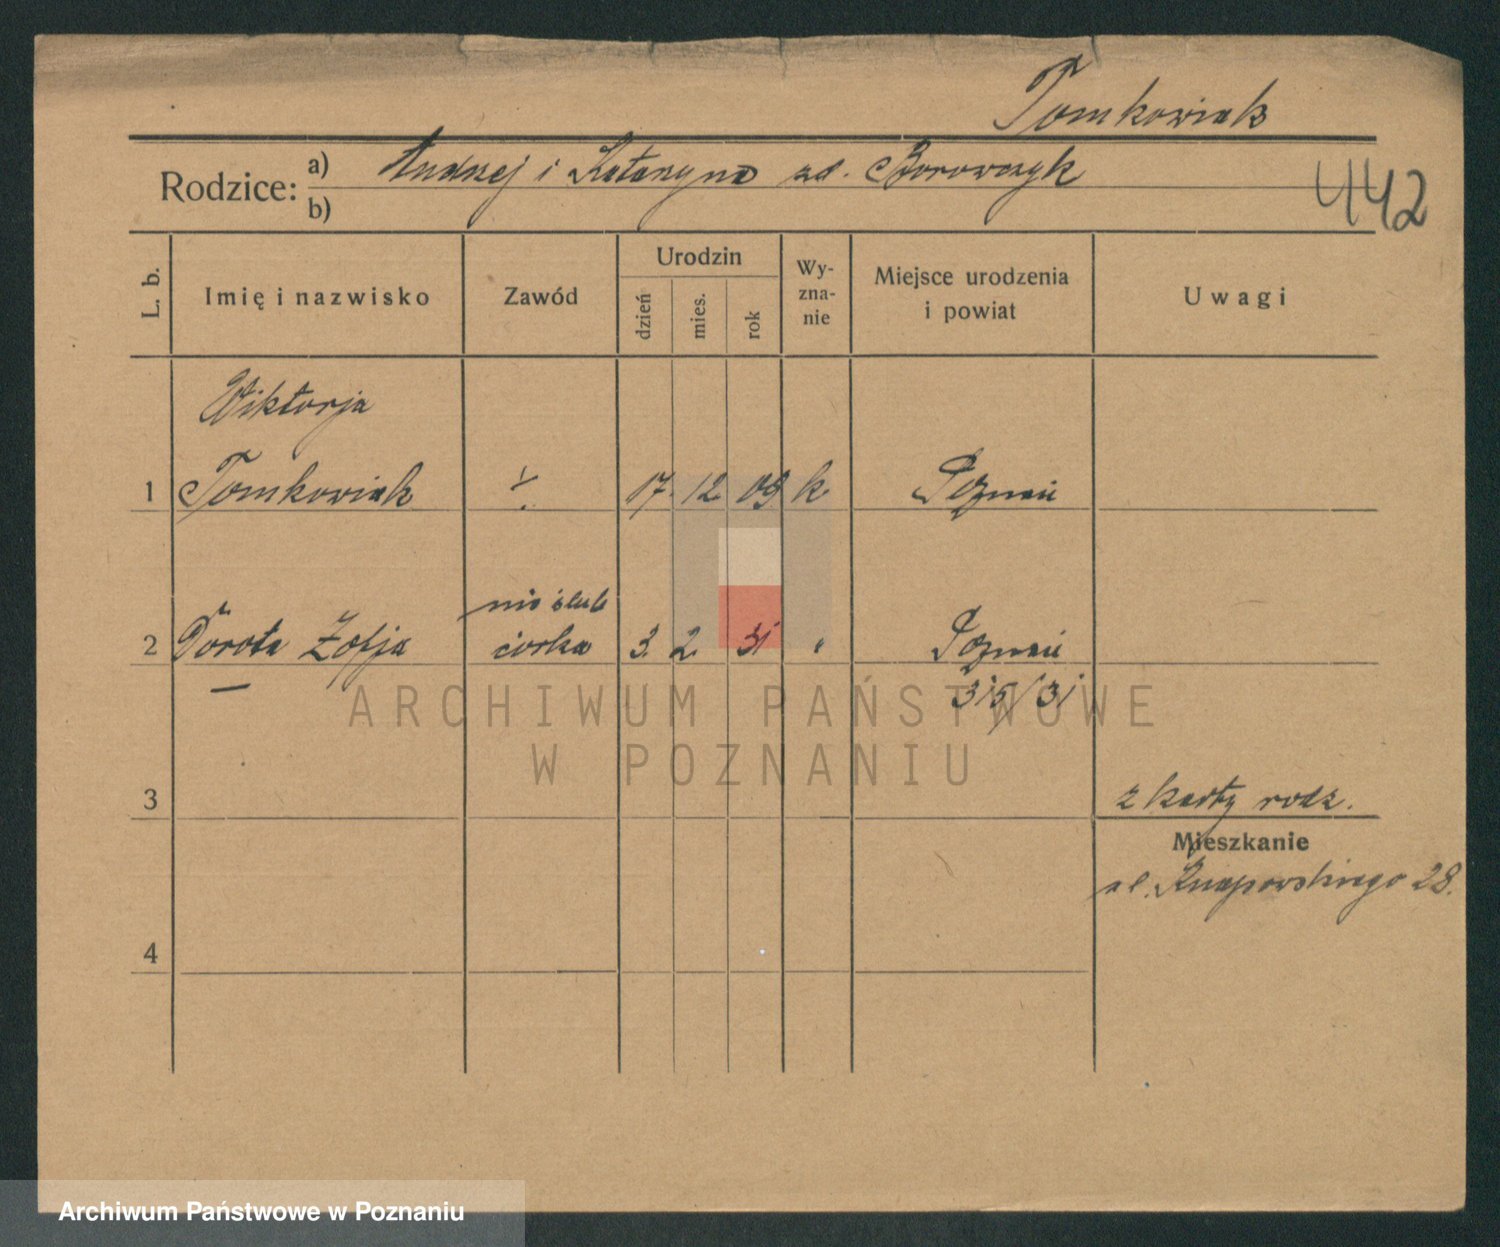 Tomkowiak
Rodzice: a) Andrzej i Katarzyna zd. Borowczyk
b)
442
L. b.
Imię i nazwisko
Zawód
Urodzin
dzień
mies.
rok
Wy-
zna-
nie
Miejsce urodzenia
i powiat
Uwagi
Wiktorja
1 Tomkowiak 17. 12 09 k. Poznań
nieślub
2 Dorota Zofja córka 3. 2. 31 " Poznań
315/31
ARCHIWUM PAŃSTWOWE
W POZNANIU
3
z karty rodz.
Mieszkanie
ul. Knapowskiego 28.
4
Archiwum Państwowe w Poznaniu